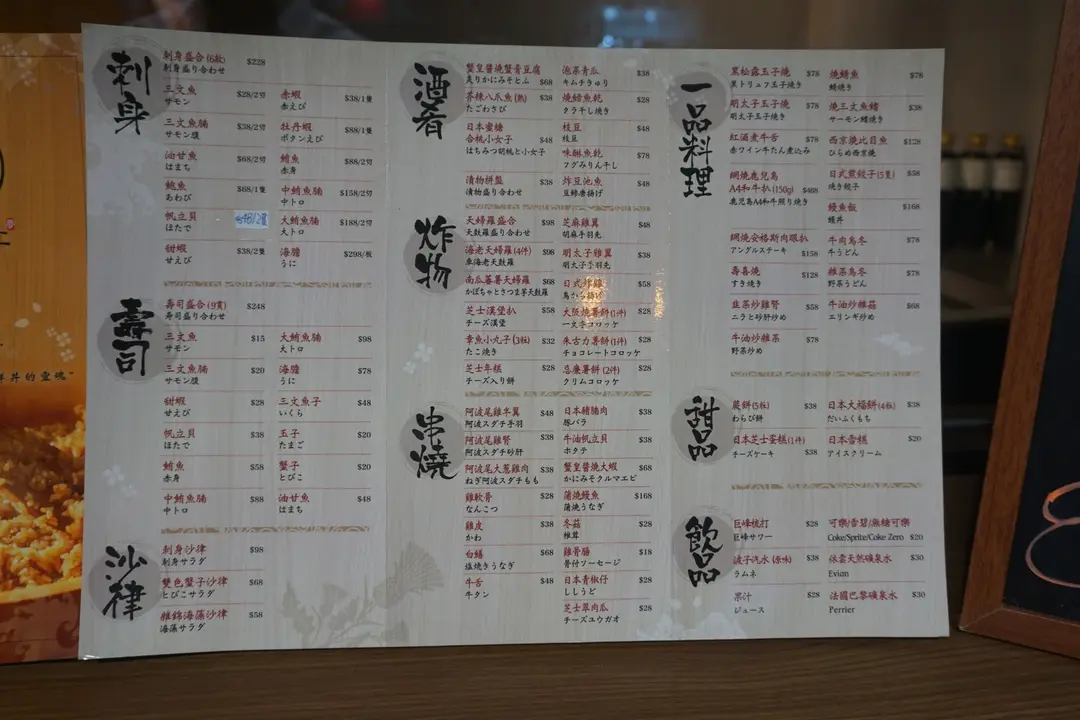 刺身
刺身盛合 (6款) $228
刺身盛り合わせ
三文魚 $28/2切
サモン
三文魚腩 $38/2切
サモン腹
油甘魚 $68/2切
はまち
鮑魚 $68/1隻
あわび
帆立貝
ほたて
甜蝦 $38/2隻
甘えび
赤蝦 $38/1隻
赤えび
牡丹蝦 $88/1隻
ボタンえび
鮪魚 $88/2切
赤身
中鮪魚腩 $158/2切
中トロ
大鮪魚腩 $188/2切
大トロ
海膽 $298/板
うに
壽司
壽司盛合 (9貫) $248
寿司盛り合わせ
三文魚 $15
サモン
三文魚腩 $20
サモン腹
甜蝦 $28
甘えび
帆立貝 $38
ほたて
鮪魚 $58
赤身
中鮪魚腩 $88
中トロ
大鮪魚腩 $98
大トロ
海膽 $78
うに
三文魚子 $48
いくら
玉子 $20
たまご
蟹子 $20
とびこ
油甘魚 $48
はまち
沙律
刺身沙律 $98
刺身サラダ
雙色蟹子沙律 $68
とびこサラダ
雜錦海藻沙律 $58
海藻サラダ
酒肴
蟹皇醬燒蟹膏豆腐
炙りかにみそとふ $68
芥辣八爪魚 (熟) $38
たこわさび
日本蜜糖
合桃小女子 $48
はちみつ胡桃と小女子
漬物拼盤 $38
漬物盛り合わせ
泡菜青瓜 $38
キムチきゅり
燒鱈魚乾 $28
タラ干し焼き
枝豆 $48
枝豆
味醂魚乾 $78
フグみりん干し
炸豆池魚
豆鯵唐揚げ $48
炸物
天婦羅盛合 $98
天麩羅盛り合わせ
海老天婦羅 (4件) $98
車海老天麩羅
南瓜蕃薯天婦羅 $68
かぼちゃとさつま芋天麩羅
芝士漢堡扒 $58
チーズ漢堡
章魚小丸子 (3粒) $32
たこ焼き
芝士年糕 $28
チーズ入り餅
芝麻雞翼
胡麻手羽先
明太子雞翼 $38
明太子手羽先
日式炸雞 $58
鳥から揚げ
大阪燒薯餅 (1件) $28
コロッケ
朱古力薯餅 (1件) $28
チョコレートコロッケ
忌廉薯餅 (2件) $28
クリムコロッケ
串燒
阿波尾雞年翼 $48
阿波スダチ手羽
阿波尾雞腎 $38
阿波スダチ砂肝
阿波尾大葱雞肉 $38
ねぎ阿波スダチもも
雞軟骨 $28
なんこつ
雞皮 $38
かわ
白鱔 $68
塩焼きうなぎ
牛舌 $48
牛タン
日本豬腩肉 $38
豚バラ
牛油帆立貝 $38
ホタテ
蟹皇醬燒大蝦 $68
かにみそクルマエビ
蒲燒鰻魚 $168
蒲焼うなぎ
冬菇 $28
椎茸
雞骨腸 $18
骨付ソーセージ
日本青椒仔 $28
ししうど
芝士翠肉瓜 $28
チーズユウガオ
一品料理
黑松露玉子燒 $78
黒トリュフ玉子焼き
明太子玉子燒 $78
明太子玉子焼き
紅酒煮牛舌 $78
赤ワイン牛たん煮込み
網燒鹿兒島
A4和牛扒 (150g) $468
鹿児島A4和牛照り焼き
網燒安格斯肉眼扒
アングルステーキ $158
壽喜燒 $128
すき焼き
韭菜炒雞腎 $58
ニラと砂肝炒め
牛油炒雜菜 $78
野菜炒め
燒鱔魚 $78
鰻焼き
燒三文魚鰭 $38
サーモン鰭焼き
西京燒比目魚 $128
ひらめ西京焼
日式煎餃子 (5隻) $58
焼き餃子
鰻魚飯 $168
鰻丼
牛肉烏冬 $78
牛うどん
雜菜烏冬 $78
野菜うどん
牛油炒雜菇 $68
エリンギ炒め
甜品
蕨餅 (5粒) $38
わらび餅
日本芝士蛋糕 (1件)
チーズケーキ $38
日本大福餅 (4粒) $38
だいふくもち
日本雪糕 $20
アイスクリーム
飲品
巨峰梳打 $28
巨峰サワー
波子汽水 (原味) $38
ラムネ
果汁 $28
ジュース
可樂/雪碧/無糖可樂
Coke/Sprite/Coke Zero $20
依雲天然礦泉水 $30
Evian
法國巴黎礦泉水 $30
Perrier
丼的靈魂"